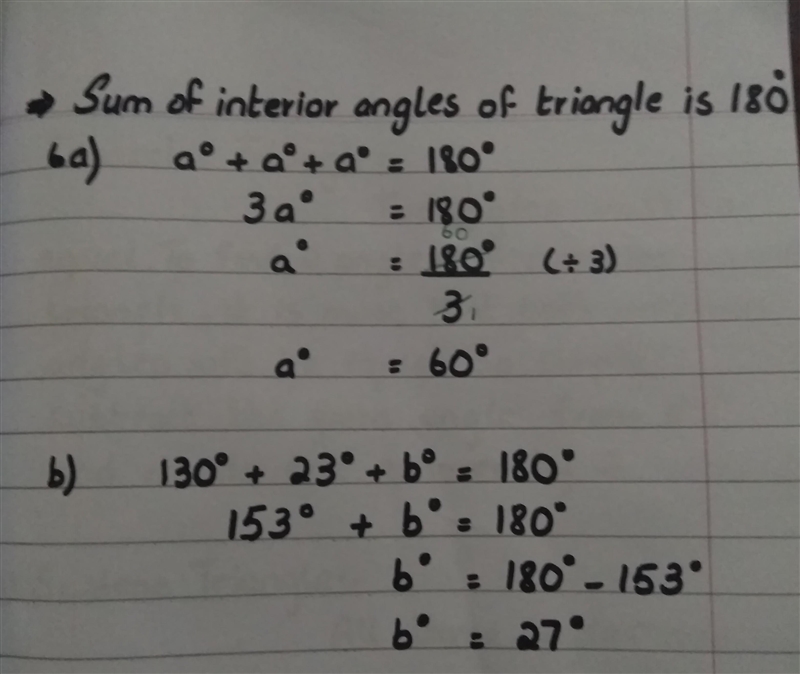 → Sum of interior angles of triangle is 180°
6a) a° + a° + a° = 180°
3a° = 180°
60
a° = 180° (÷3)
3 1
a° = 60°
b) 130° + 23° + b° = 180°
153° + b° = 180°
b° = 180° - 153°
b° = 27°